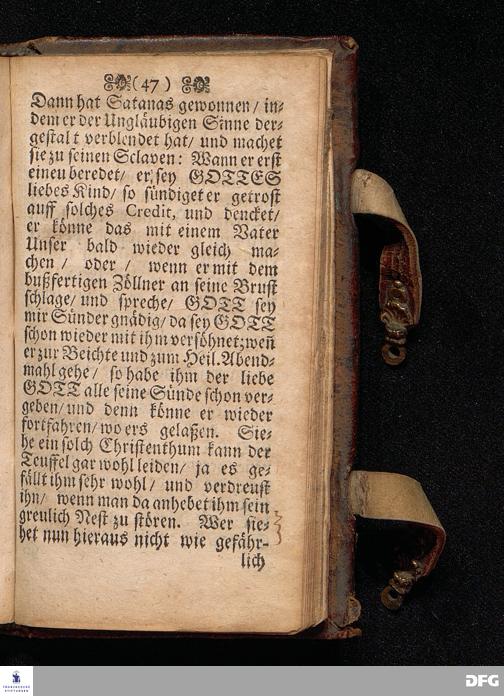 (47)
Dann hat Satanas gewonnen / in-
dem er der Ungläubigen Sinne der-
gestalt verblendet hat / und machet
sie zu seinen Sclaven: Wann er erst
einen beredet / er sey GOTTES
liebes Kind / so sündiget er getrost
auff solches Credit, und dencket /
er könne das mit einem Vater
Unser bald wieder gleich ma-
chen / oder / wenn er mit dem
bußfertigen Zöllner an seine Brust
schlage / und spreche / GOTT sey
mir Sünder gnädig / da sey GOTT
schon wieder mit ihm versöhnet, weñ
er zur Beichte und zum Heil. Abend-
mahl gehe / so habe ihm der liebe
GOTT alle seine Sünde schon ver-
geben / und denn könne er wieder
fortfahren / wo ers gelaßen. Sie-
he ein solch Christenthum kann der
Teuffel gar wohl leiden / ja es ge-
fällt ihm sehr wohl / und verdreust
ihn / wenn man da anhebet ihm sein
greulich Nest zu stören. Wer sie-
het nun hieraus nicht wie gefähr-
lich
FRANCKESCHE
STIFTUNGEN
DFG